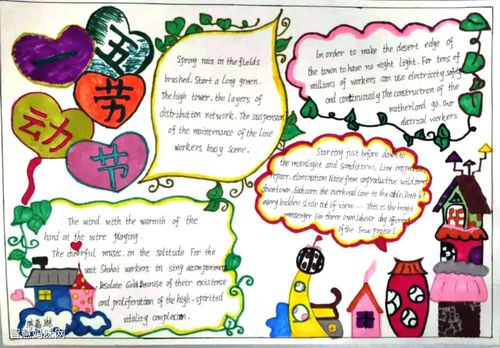 一
五
劳
动
节
Spring rain in the fields
brushed. Start a long green.
The high tower, the layers of
distribution network. The suspension
of the maintenance of the line
workers busy scene.
In order to make the desert edge of
the town to have no night light. For tens of
millions of workers can use electricity safely
and continuously The construction of the
motherland go. Our
electrical workers
Starting just before dawn to
the moonlight and sandstorm. Line inspection
repair. elimination Noise from unproductive wild
downtown. Each corn the overhead line to the cable.
every hidden slide out of view. This is the bright
messenger For their own labour day
of the True praise!
The wind with the warmth of the
hand on the wire playing.
The cheerful music. in the solitude For the
vast workers in sing accompaniment
Desolate Gobi Because of their existence
and proliferation of the high-spirited
vitality completion.
智慧妈咪网